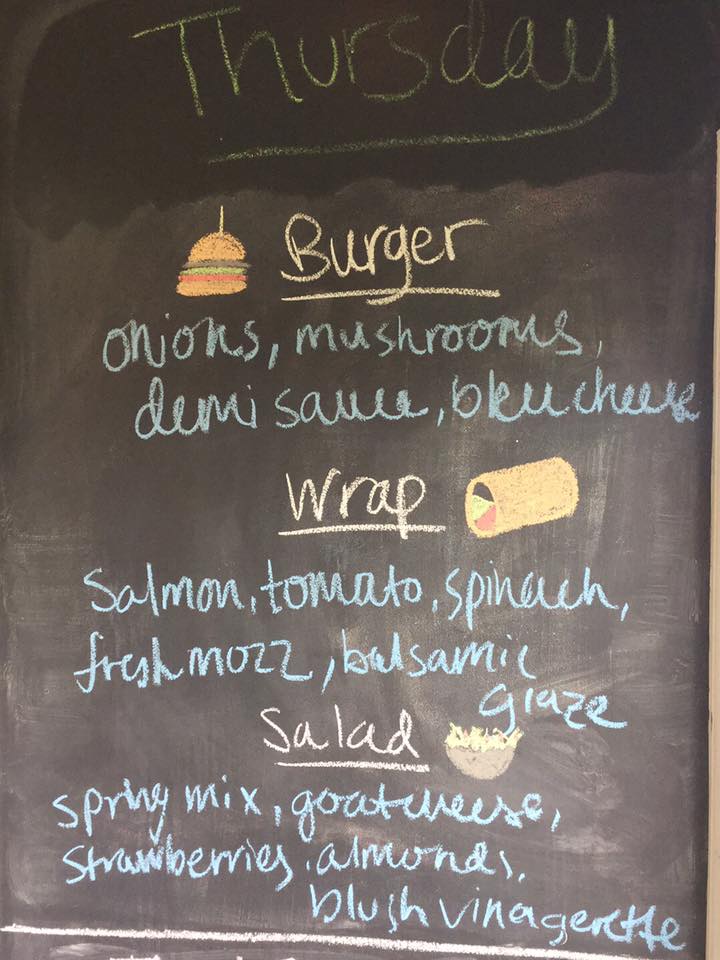 Thursday
Burger
onions, mushrooms,
demi sauce, bleu cheese
Wrap
Salmon, tomato, spinach,
fresh mozz, balsamic
glaze
Salad
spring mix, goat cheese,
strawberries, almonds,
blush vinagerette